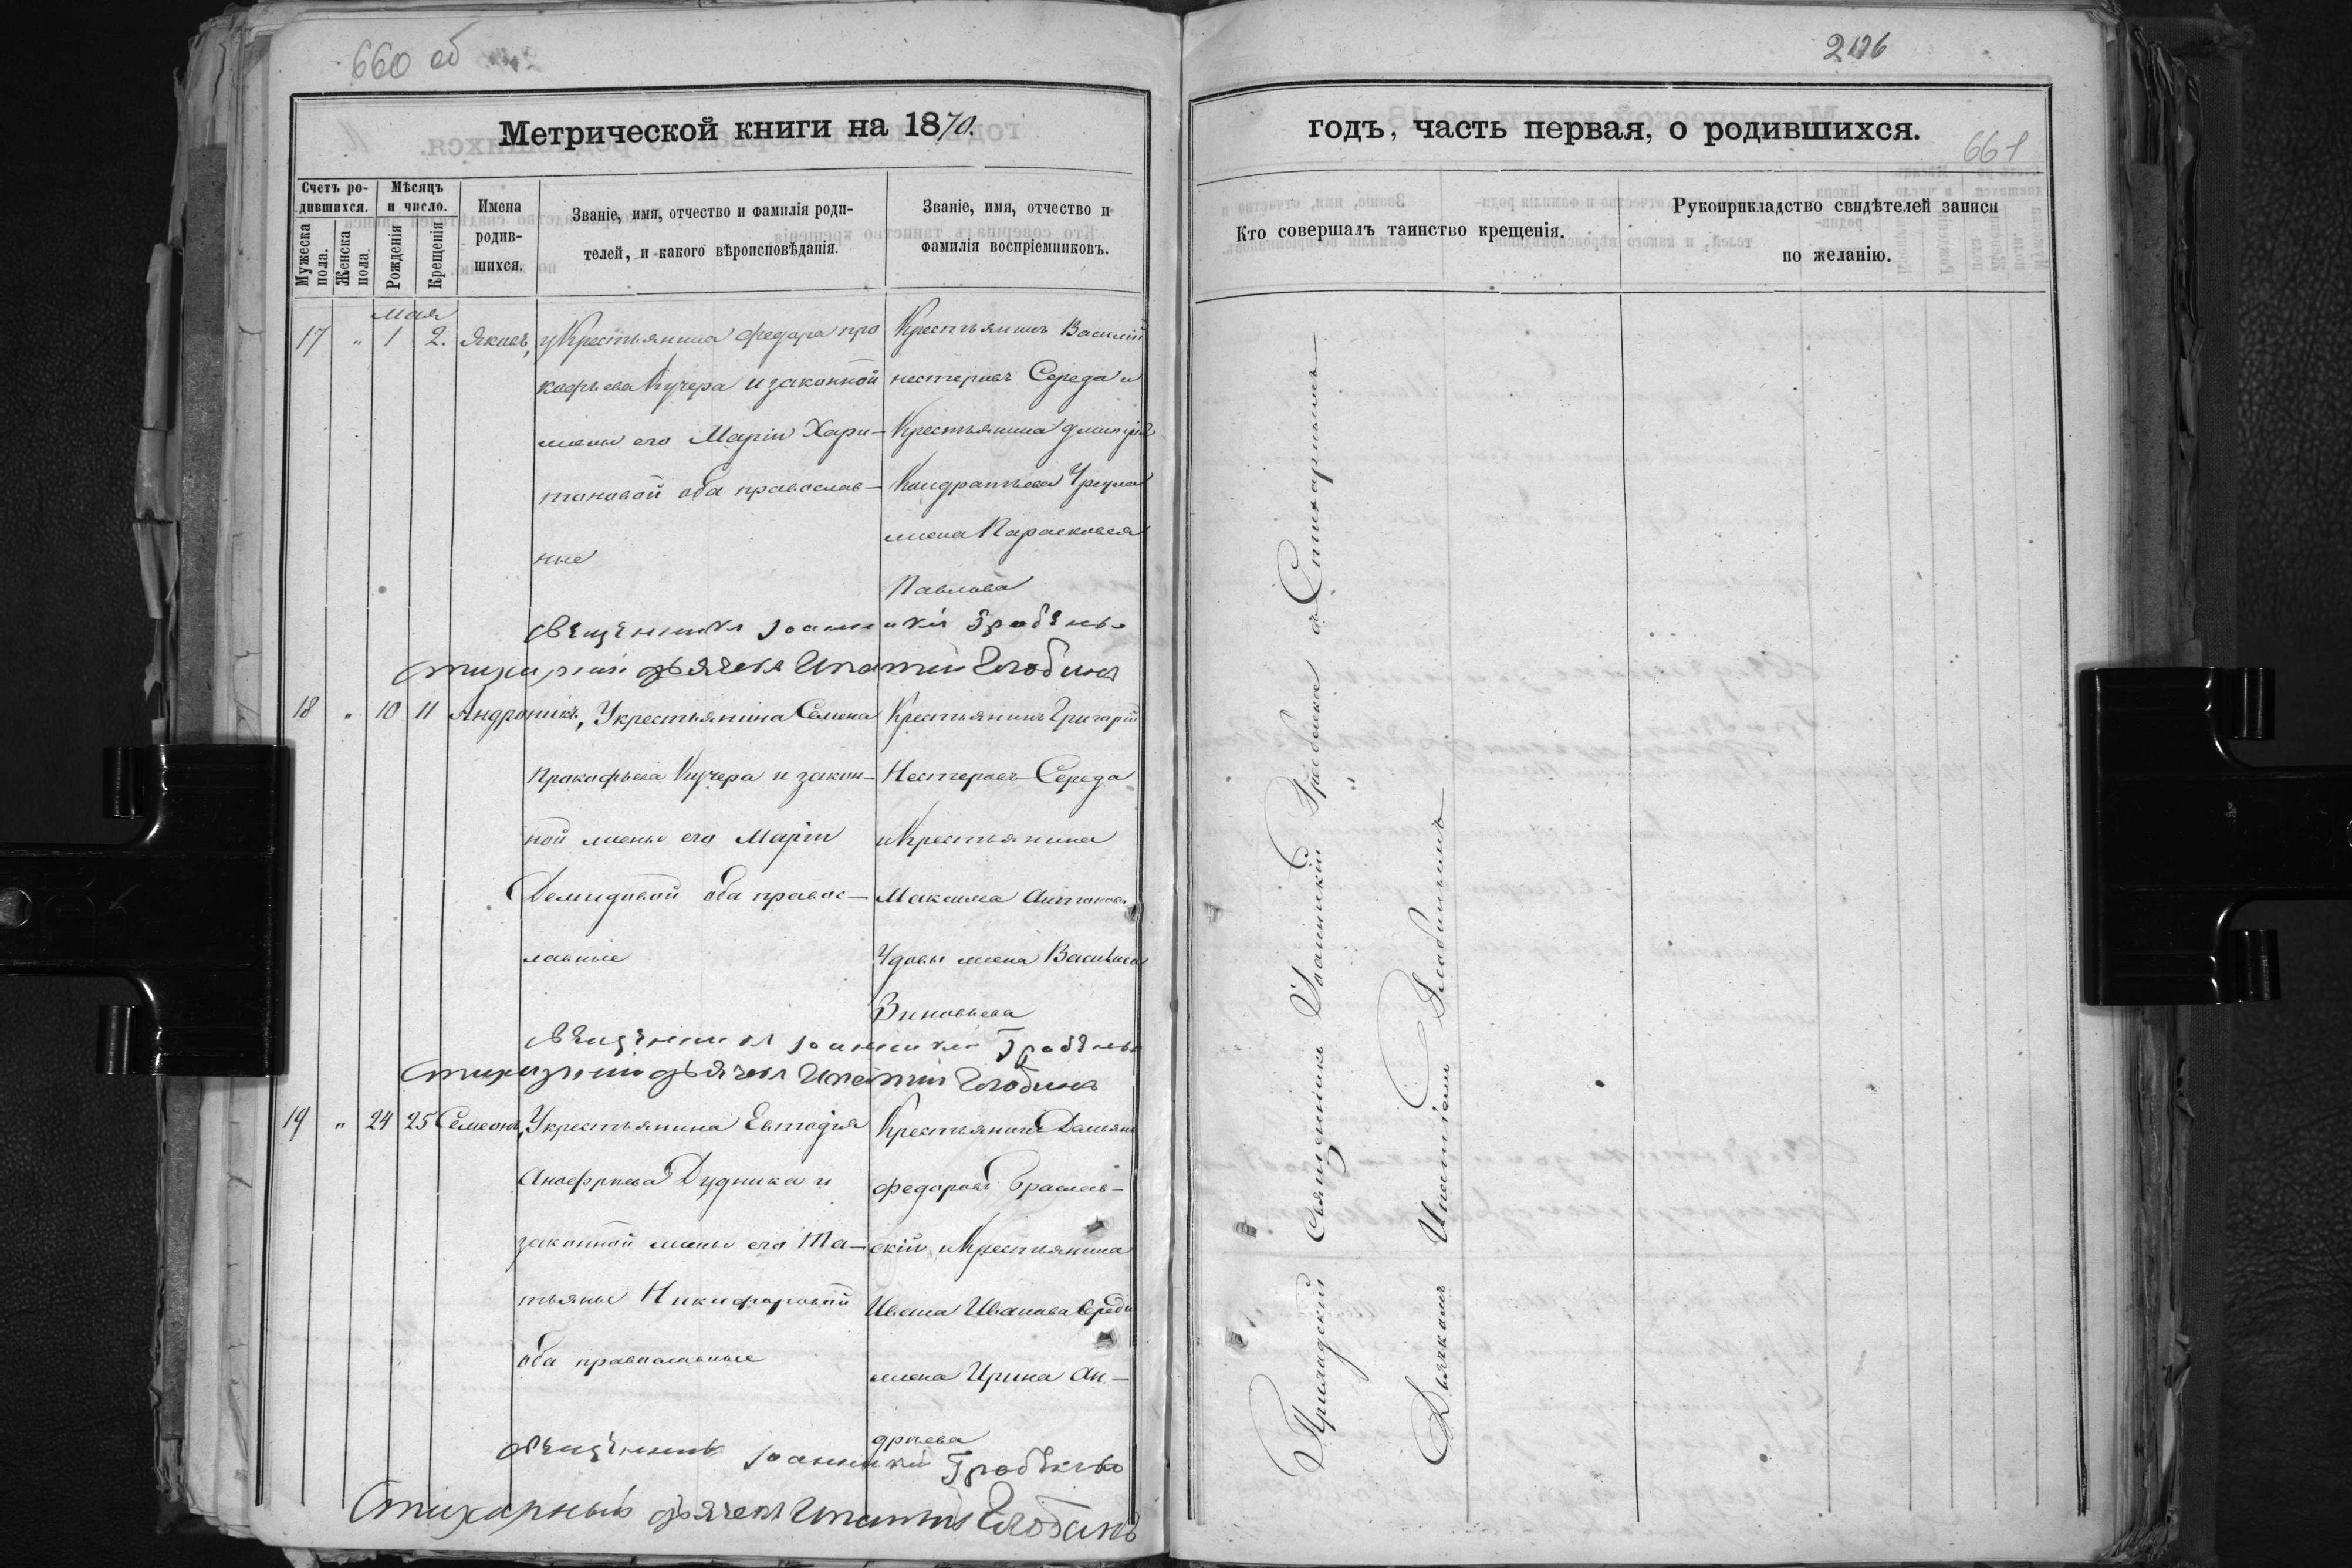 660 об
Метрической книги на 1870.
Счетъ ро-
дившихся.
Мужеска
пола.
Женска
пола.
Мѣсяцъ
и число.
Рожденія
Крещенія
Имена
родив-
шихся.
Званіе, имя, отчество и фамилія роди-
телей, и какого вѣроисповѣданія.
Званіе, имя, отчество и
фамилія воспріемниковъ.
мая
17 " 1 2. Яковъ, у Крестьянина Федора про
кофьева Кучера и законной
жены его Маріи Хари-
тоновой оба православ-
ные
Крестьянинъ Василій
нестеровъ Середа и
Крестьянина Дмитрія
Кондратьева
жена Парасковея
Павлова
Священникъ Іоанникій Гребѣнько
стихарный дьячекъ Ипатій Глобинъ
18 " 10 11 Андроникъ, У крестьянина Семена
Прокофьева Кучера и закон-
ной жены его Маріи
Демидовой оба правос-
лавные
Крестьянинъ Григорій
Нестеровъ Середа
и Крестьянина
Максима Антонова
Удовы жена Василиса
Зиновьева
Священникъ Іоанникій Гребѣнько
стихарный дьячекъ Ипатій Глобинъ
19 " 24 25 Семеонъ, У крестьянина Евтофія
Анофриева Дудника и
законной жены его Та-
тьяны Никифоровой
оба православные
Крестьянинъ Демьянъ
Федоровъ
скій и Крестьянина
Ивана Иванова Середы
жена Ирина Ан-
дриева
Священникъ Іоанникій Гребѣнько
Стихарный дьячекъ Ипатій Глобинъ
206
годъ, часть первая, о родившихся.
661
Кто совершалъ таинство крещенія.
Рукоприкладство свидѣтелей записи
по желанію.
Приходскій Священникъ Іоанникій Гребенька съ Стихарнымъ
Дьячкомъ Ипатіемъ Глобинымъ